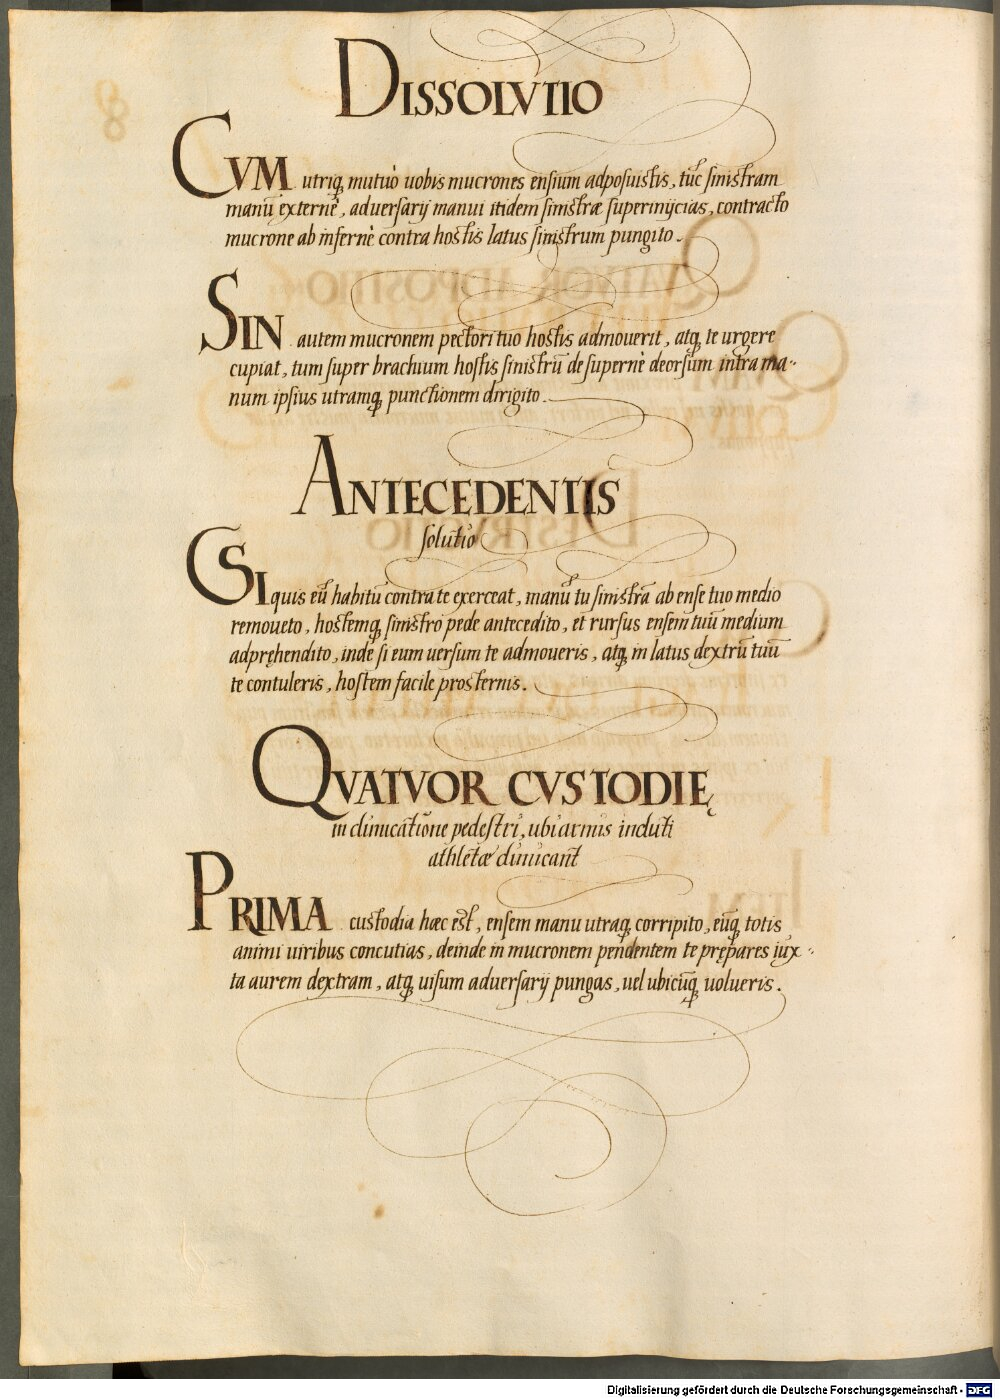 DISSOLVTIO
CVM utriq; mutuò uobis mucrones ensium adposuistis, tūc sinistram
manū externè, aduersarij manui itidem sinistræ superinijcias, contracto
mucrone ab infernè contra hostis latus sinistrum pungito.
SIN autem mucronem pectori tuo hostis admouerit, atq; te urgere
cupiat, tum super brachium hostis sinistrū de supernè deorsum intra ma-
num ipsius utramq; punctionem dirigito.
ANTECEDENTIS
solutio
SI quis eū habitū contra te exerceat, manū tu sinistrā ab ense tuo medio
remoueto, hostemq; sinistro pede antecedito, et rursus ensem tuū medium
adpręhendito, inde si eum uersum te admoueris, atq; in latus dextrū tuū
te contuleris, hostem facile prosternis.
QVATVOR CVSTODIĘ
in dimicatione pedestri, ubi armis induti
athletæ dimicant
PRIMA custodia hæc est, ensem manu utraq; corripito, eūq; totis
animi uiribus concutias, deinde in mucronem pendentem te prępares iux-
ta aurem dextram, atq; uisum aduersarij pungas, uel ubicūq; uolueris.
Digitalisierung gefördert durch die Deutsche Forschungsgemeinschaft - DFG